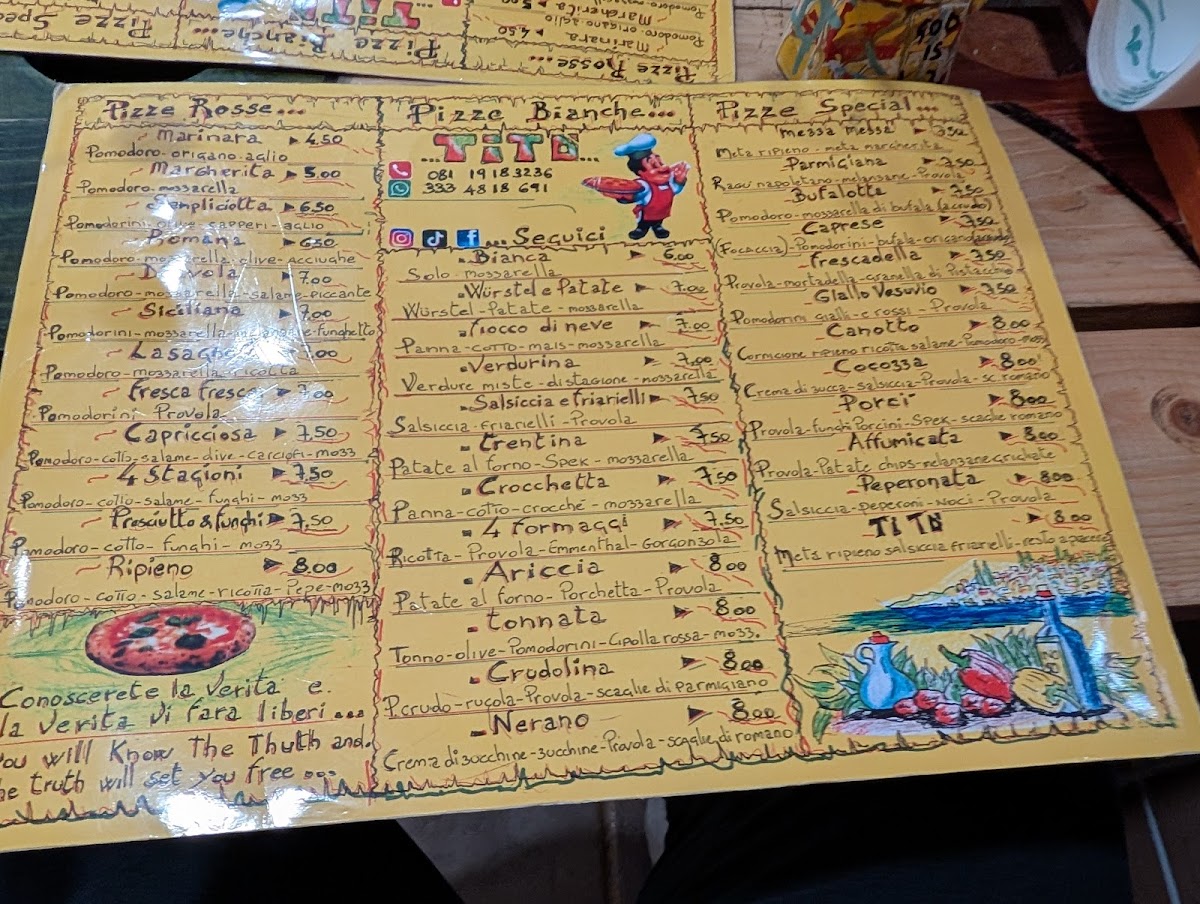 Pizze Rosse...
Marinara 4.50
Pomodoro-origano-aglio
Margherita 5.00
Pomodoro-mossarella
Sempliciotta 6.50
Pomodorini-olive-capperi-aglio
Romana 6.50
Pomodoro-mossarella-olive-acciughe
7.00
Pomodoro-mossarella-salame-piccante
Siciliana 7.00
Pomodorini-mossarella-melanzane-funghetto
Lasagne 7.00
Pomodoro-mossarella-ricotta
fresca fresca 7.00
Pomodorini Provola
Capricciosa 7.50
Pomodoro-cotto-salame-olive-carciofi-mo33
4 Stagioni 7.50
Pomodoro-cotto-salame-funghi-mo33
Prosciutto & funghi 7.50
Pomodoro-cotto-funghi-mo33
Ripieno 8.00
Pomodoro-cotto-salame-ricotta-Pepe-mo33
Conoscerete la verita e.
la verita vi fara liberi...
You will Know The Thuth and.
he truth will set you free...
Pizze Bianche...
...TiTò...
081 1918 3236
333 4818 691
...Seguici
Bianca 6.00
Solo-mossarella
Würstel e Patate 7.00
Würstel-Patate-mossarella
fiocco di neve 7.00
Panna-cotto-mais-mossarella
Verdurina 7.00
Verdure miste-di stagione-mossarella
Salsiccia e friarielli 7.50
Salsiccia-friarielli-Provola
trentina 7.50
Patate al forno-Spek-mossarella
Crocchetta 7.50
Panna-cotto-crocché-mossarella
4 formaggi 7.50
Ricotta-Provola-Emmenthal-Gorgonzola
Ariccia 8.00
Patate al forno-Porchetta-Provola
tonnata 8.00
Tonno-olive-Pomodorini-Cipolla rossa-mo33.
Crudolina 8.00
P.crudo-rucola-Provola-scaglie di parmigiano
Nerano 8.00
Crema di zucchine-zucchine-Provola-scaglie di romano
Pizze Special...
messa messa 7.50
Metà ripieno-metà margherita
Parmigiana 7.50
Ragù napoletano-melanzane-Provola
Bufalotta 7.50
Pomodoro-mossarella di bufala (a crudo)
Caprese 7.50
(Focaccia)-Pomodorini-bufala-origano
frescadella 7.50
Provola-mortadella-granella di Pistacchio
Giallo Vesuvio 7.50
Pomodorini gialli-e rossi-Provola
Canotto 8.00
Cornicione ripieno ricotta salame-Pomodoro-moss
Cocozza 8.00
Crema di zucca-salsiccia-Provola-sc.romano
Porcì 8.00
Provola-funghi Porcini-Spek-scaglie romano
Affumicata 8.00
Provola-Patate chips-melanzane grigliate
Peperonata 8.00
Salsiccia-peperoni-Noci-Provola
TITÒ 8.00
Metà ripieno salsiccia friarielli-resto a piacere